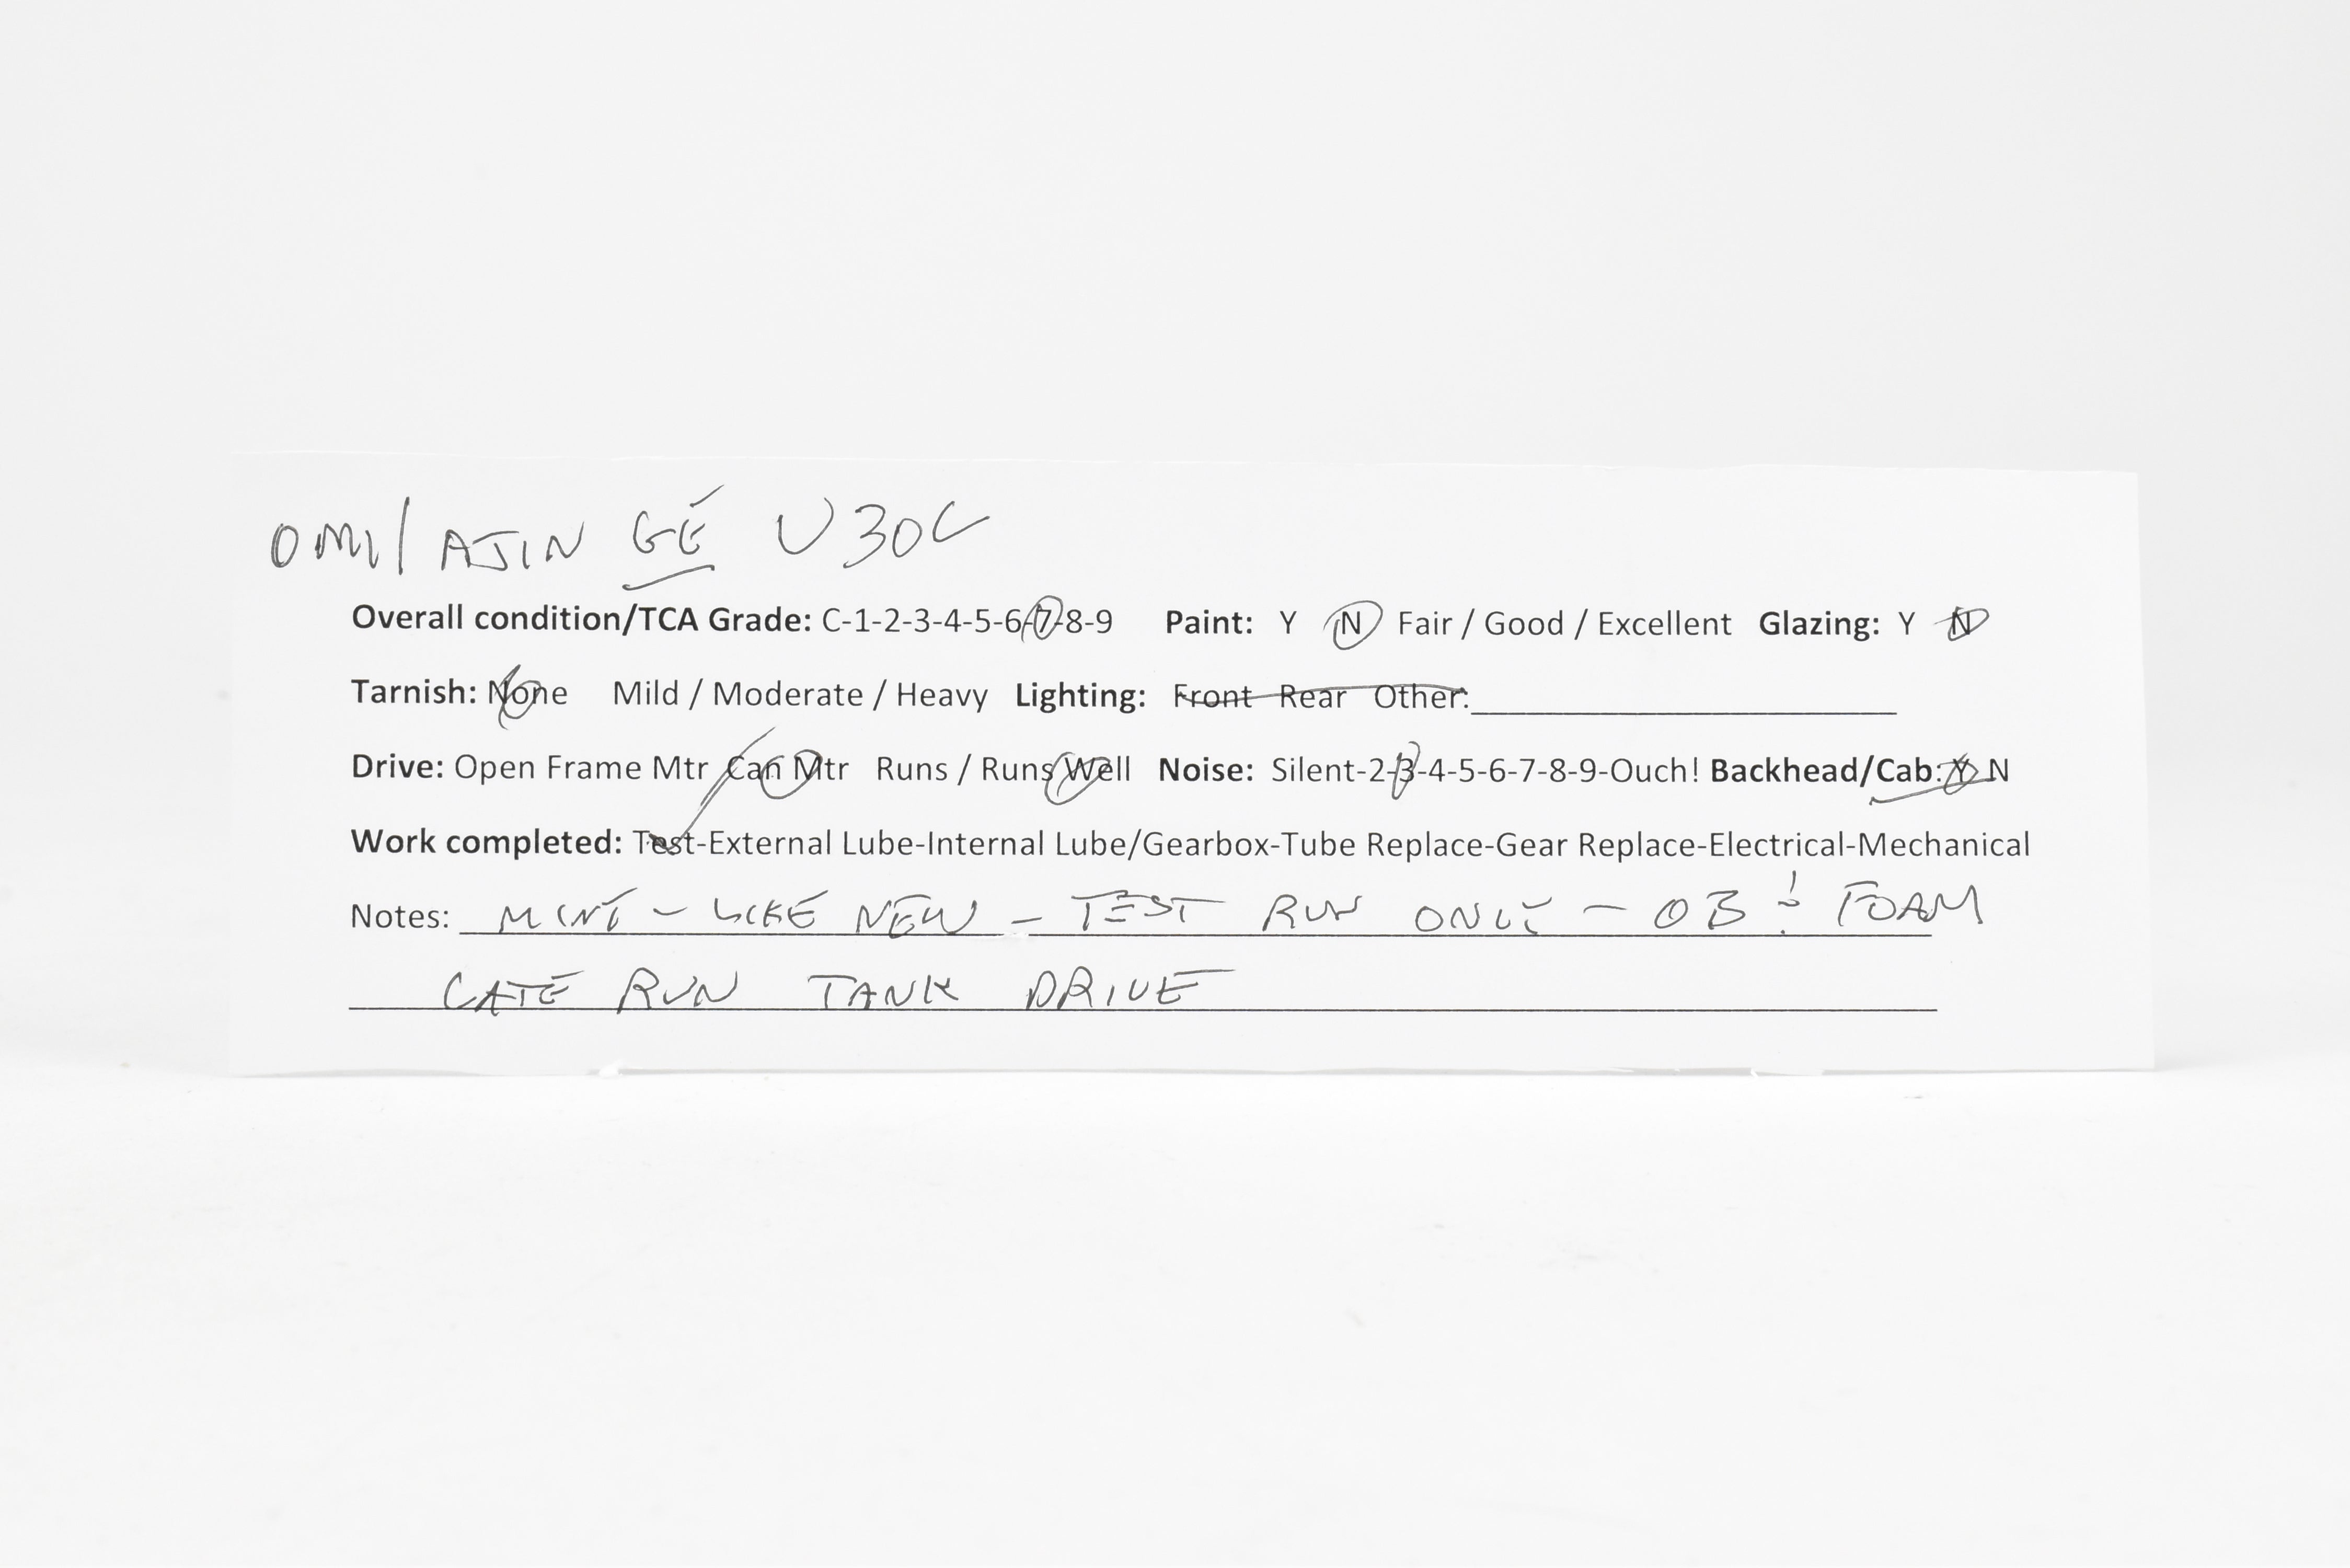 OMI/AJIN GE U30C
Overall condition/TCA Grade: C-1-2-3-4-5-6-7-8-9 Paint: Y N Fair / Good / Excellent Glazing: Y N
Tarnish: None Mild / Moderate / Heavy Lighting: Front Rear Other:
Drive: Open Frame Mtr Can Mtr Runs / Runs Well Noise: Silent-2-3-4-5-6-7-8-9-Ouch! Backhead/Cab: Y N
Work completed: Test-External Lube-Internal Lube/Gearbox-Tube Replace-Gear Replace-Electrical-Mechanical
Notes: MINT - LIKE NEW - TEST RUN ONLY - OB & FOAM
LATE RUN TANK DRIVE